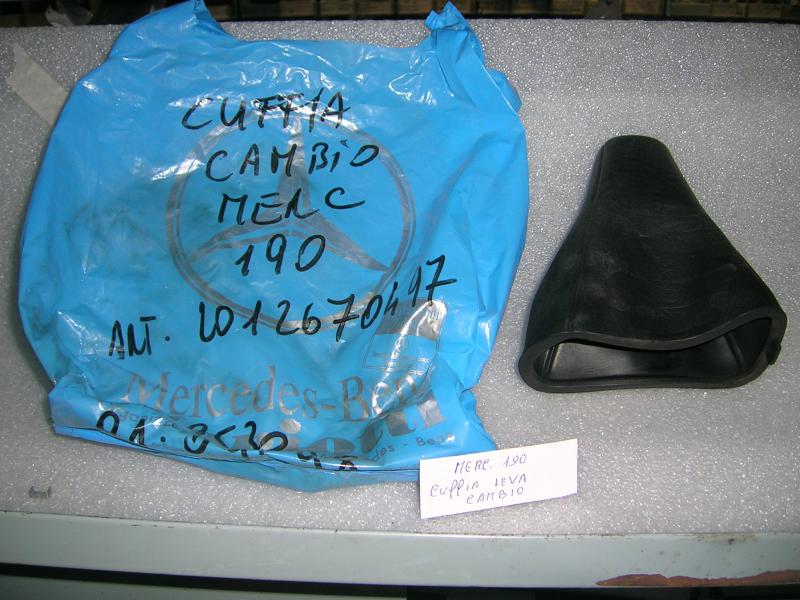 CUFFIA
CAMBIO
MERC
190
ANT. 2012670497
Mercedes-Benz
MERC. 190
CUFFIA LEVA
CAMBIO